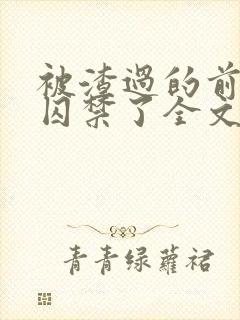 被渣过的前
囚禁了全文
青青绿蘿裙